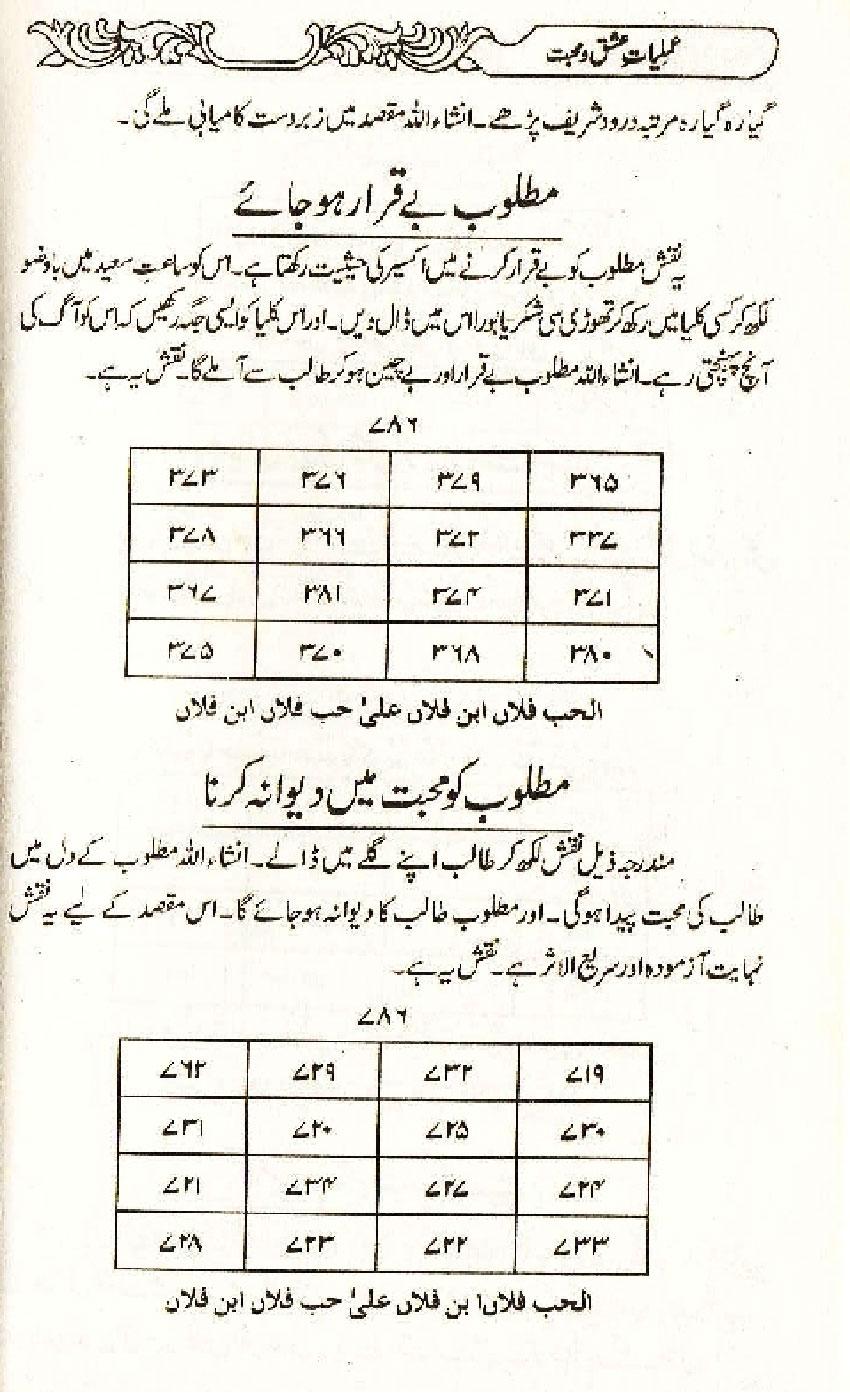 عملیاتِ عشق و محبت
گیارہ گیارہ مرتبہ درود شریف پڑھے۔ انشاء اللہ مقصد میں زبردست کامیابی ملے گی۔
مطلوب بے قرار ہو جائے
یہ نقش مطلوب کو بے قرار کرنے میں اکسیر کی حیثیت رکھتا ہے۔ اس کو ساعتِ سعید میں باوضو
لکھ کر کسی کلیا میں رکھ کر تھوڑی سی شکر یا بورا اس میں ڈال دیں۔ اور اس کلیا کو ایسی جگہ رکھیں کہ اس کو آگ کی
آنچ پہنچتی رہے۔ انشاء اللہ مطلوب بے قرار اور بے چین ہو کر طالب سے آملے گا۔ نقش یہ ہے۔
۷۸۶
۳۷۳ ۳۷۶ ۳۷۹ ۳۶۵
۳۷۸ ۳۶۶ ۳۷۲ ۳۳۷
۳۶۷ ۳۸۱ ۳۷۴ ۳۷۱
۳۷۵ ۳۷۰ ۳۶۸ ۳۸۰
الحب فلاں ابن فلاں علیٰ حب فلاں ابن فلاں
مطلوب کو محبت میں دیوانہ کرنا
مندرجہ ذیل نقش لکھ کر طالب اپنے گلے میں ڈالے۔ انشاء اللہ مطلوب کے دل میں
طالب کی محبت پیدا ہوگی۔ اور مطلوب طالب کا دیوانہ ہو جائے گا۔ اس مقصد کے لیے یہ نقش
نہایت آزمودہ اور سریع الاثر ہے۔ نقش یہ ہے۔
۷۸۶
۷۶۲ ۷۲۹ ۷۳۲ ۷۱۹
۷۳۱ ۷۲۰ ۷۲۵ ۷۳۰
۷۲۱ ۷۳۴ ۷۲۷ ۷۲۴
۷۲۸ ۷۲۳ ۷۲۲ ۷۳۳
الحب فلاں ابن فلاں علیٰ حب فلاں ابن فلاں